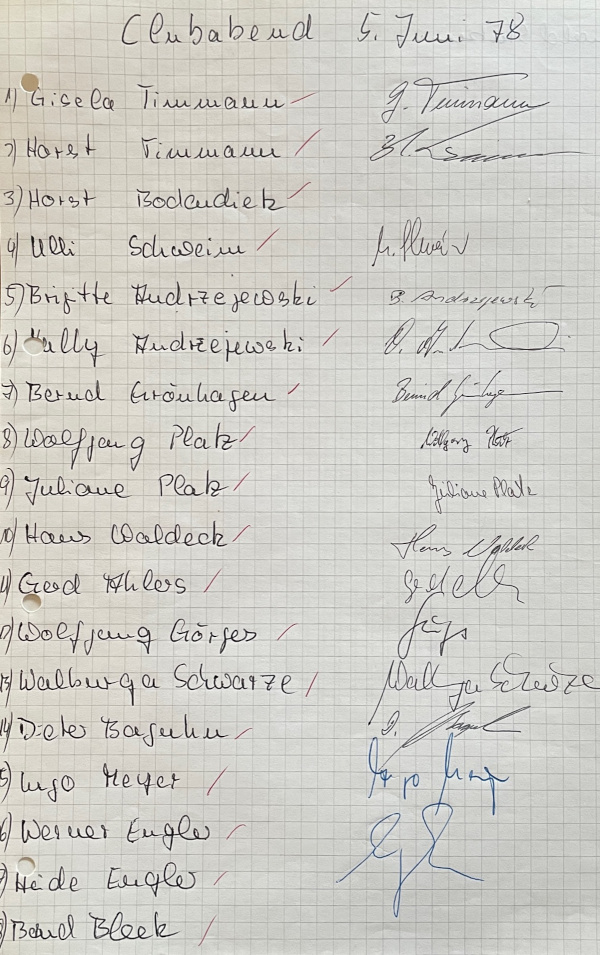 Clubabend 5. Juni 78
1) Gisela Timmann G. Timmann
2) Horst Timmann
3) Horst Bodendiek
4) Ulli Schweim
5) Brigitte Andrzejewski B. Andrzejewski
6) Kully Andrzejewski
7) Bernd Grönhagen Bernd
8) Wolfgang Platz Wolfgang Platz
9) Juliane Platz Juliane Platz
10) Hans Waldeck Hans Waldeck
11) Gerd Ahlers
12) Wolfgang Görges Görges
13) Walburga Schwarze Walburga Schwarze
14) Dieter Baguhn D. Baguhn
15) Ingo Meyer Ingo Meyer
16) Werner Engler
17) Heide Engler
18) Bernd Bleek